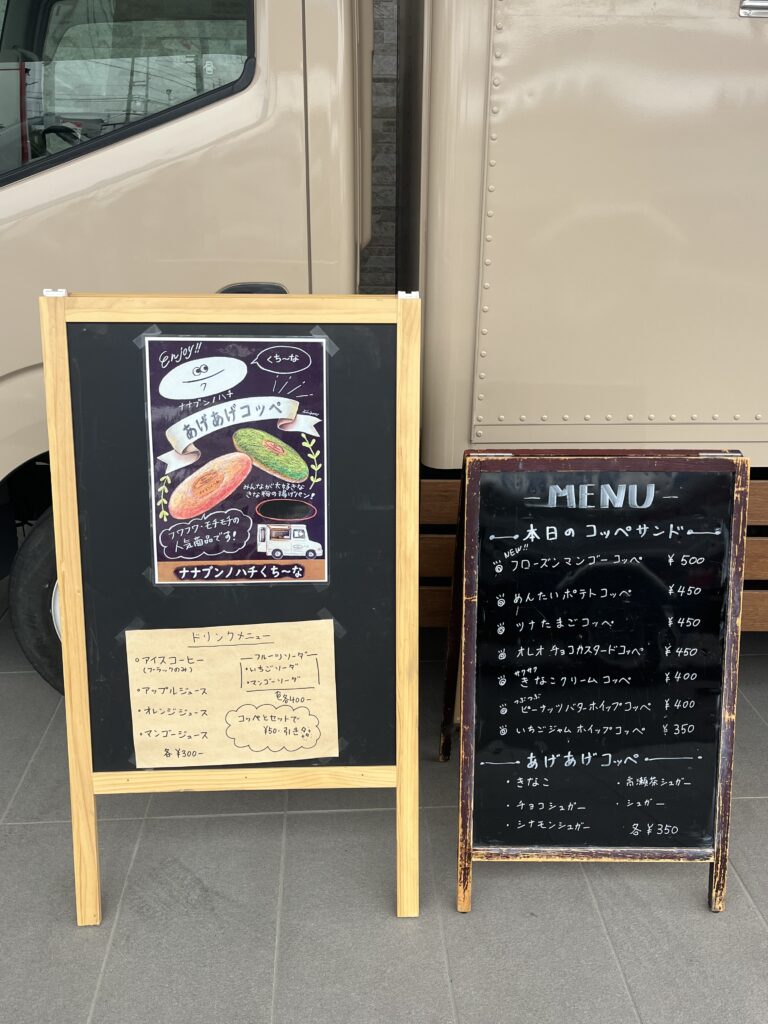 Enjoy!!
くち〜な
ナナブンノハチ
あげあげコッペ
みんなが大好きな
きな粉の揚げパン!
フワフワ・モチモチの
人気商品です!
ナナブンノハチくち〜な
ドリンクメニュー
アイスコーヒー
(ブラックのみ)
アップルジュース
オレンジジュース
マンゴージュース
各¥300-
フルーツソーダ
いちごソーダ
マンゴーソーダ
各400-
コッペとセットで
¥50-引き
MENU
本日のコッペサンド
NEW!!
フローズンマンゴーコッペ ¥500
めんたいポテトコッペ ¥450
ツナたまごコッペ ¥450
オレオチョコカスタードコッペ ¥450
サクサク
きなこクリームコッペ ¥400
つぶつぶ
ピーナッツバターホイップコッペ ¥400
いちごジャムホイップコッペ ¥350
あげあげコッペ
・きなこ ・高瀬茶シュガー
・チョコシュガー ・シュガー
・シナモンシュガー 各¥350